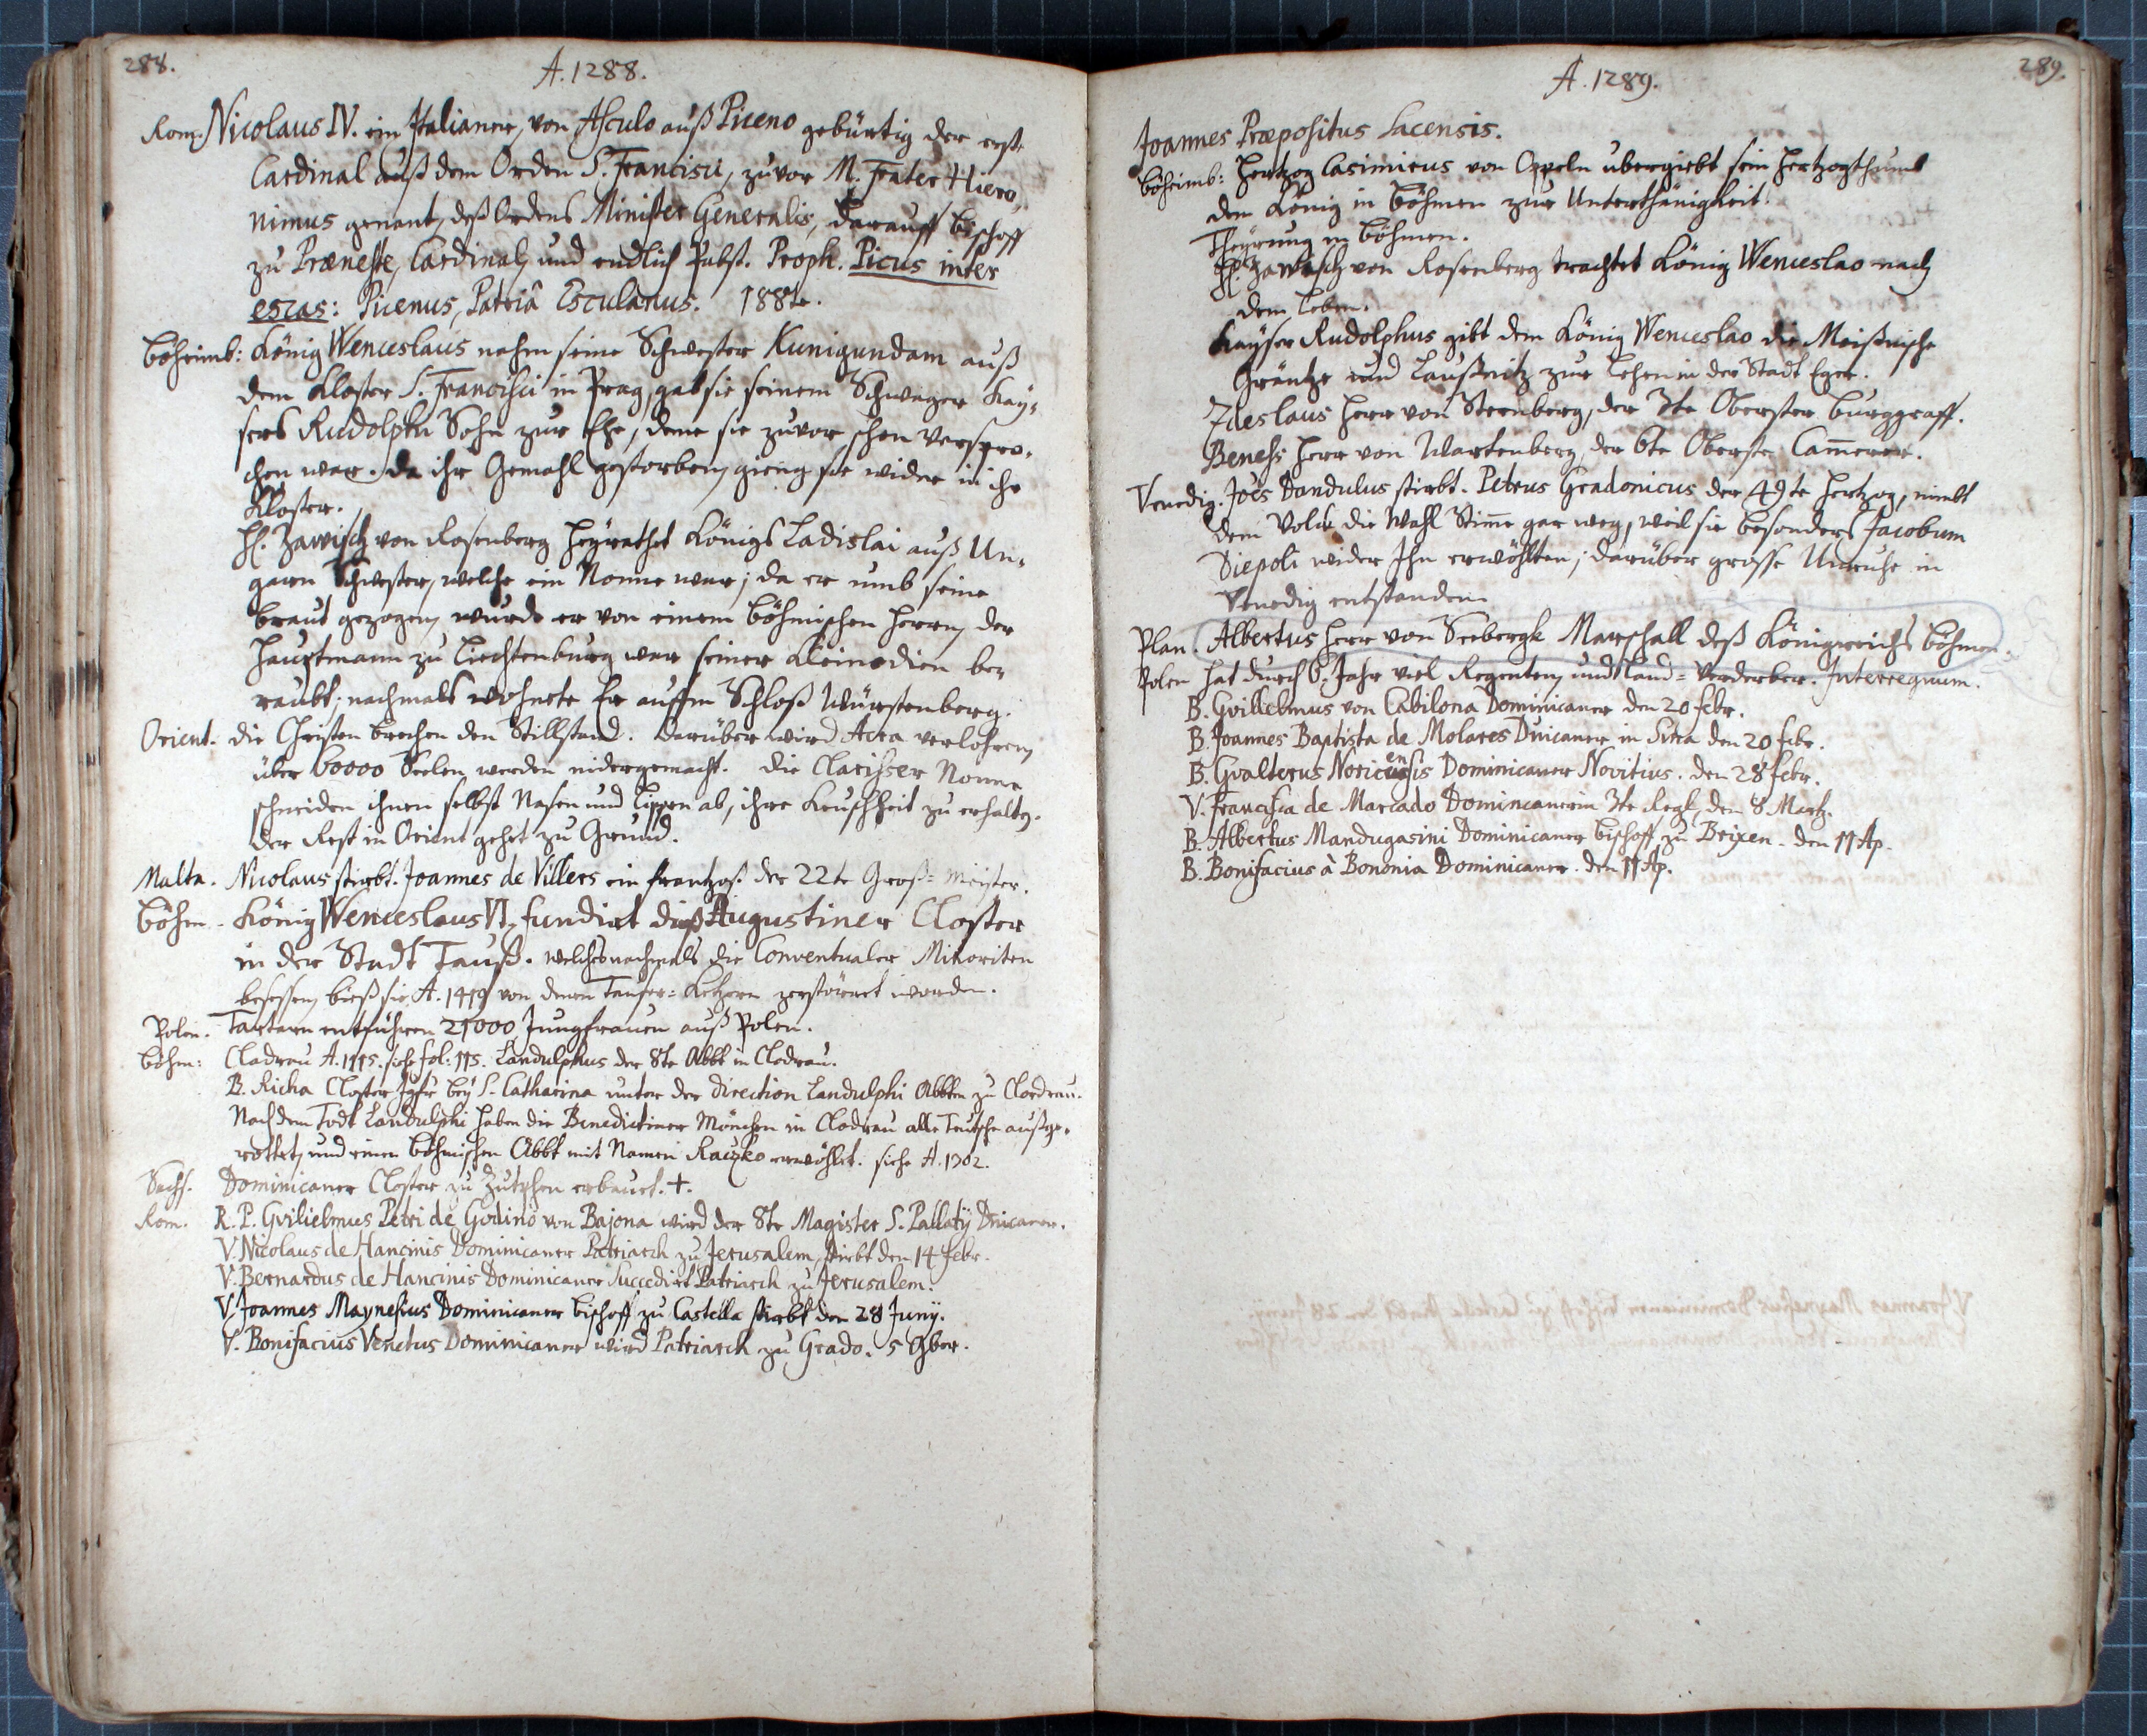 288.
A. 1288.
Rom. Nicolaus IV. ein Italianer, von Asculo auß Piceno gebürtig der erste
Cardinal auß dem Orden S. Francisci, zuvor M. Frater Hiero,
nimus genant, deß Ordens Minister Generalis, darauff bischoff
zu Præneste, Cardinal, und endlich Pabst. Proph. Picus inter
escas: Picenus, Patriâ Esculanus. 188te.
Böheimb: König Wenceslaus nahm seine Schwester Kunigundam auß
dem Kloster S. Francisci in Prag, gab sie seinem Schwager Kay,
sers Rudolphi Sohn zur Ehe, deme sie zuvor schon verspro,
chen war. da ihr Gemahl gestorben, gieng sie wider in ihr
Kloster.
H. Zawisch von Rosenberg heyrathet Königs Ladislai auß Un,
garn Schwester, welche ein Nonne war; da er umb seine
braut gezogen, wurde er von einem böhmischen herrn, der
hauptmann zu Liechtenburg war seiner Kleinodien be,
raubt; nachmals wohnete Er auffm Schloß Würstenberg.
Orient. die Christen brechen den Stillstand. darüber wird Acra verlohren,
über 60000 Seelen werden nidergemacht. die Clarisser Nonne
schneiden ihnen selbst Nasen und Lippen ab, ihre Keuschheit zu erhalten.
der Rest in Orient gehet zu Grund.
Malta. Nicolaus stirbt. Joannes de Villers ein frantzoß der 22te Groß-meister.
Böhm. König Wenceslaus VI. fundirt diß Augustiner Closter
in der Stadt Tauß. welches nachmals die Conventualer Minoriten
besessen, bieß sie A. 1419 von denen Ketzern zerstöhret worden.
Polen. Tartarn entführen 21000 Jungfrauen auß Polen.
Böhm: Cladrau A. 1115. siehe fol: 115. Landulphus der 8te Abbt in Cladrau.
B. Richa Closter Jgfr bey S. Catharina unter der Direction Landulphi Abbten zu Cladrau.
Nach dem Todt Landulphi haben die Benedictiner Mönchen in Cladrau alle Teutsche außge,
rottet, und einen böhmischen Abbt mit Namen Raczko erwöhlet. siehe A. 1302.
Sachs. Dominicaner Closter zu Zutphen erbauet. +.
Rom. R. P. Gvilielmus Petri de Godino von Bajona wird der 8te Magister S. Pallatÿ Dnicaner.
V. Nicolaus de Hancinis Dominicaner Patriarch zu Jerusalem, stirbt den 14 febr.
V. Bernardus de Hancinis Dominicaner Succedirt Patriarch zu Jerusalem.
V. Joannes Maynesius Dominicaner bischoff zu Castella stirbt den 28 Junÿ.
V. Bonifacius Venetus Dominicaner wird Patriarch zu Grado. 5
289.
A. 1289.
Joannes Præpositus Lacensis.
Böheimb: hertzog Casimirus von Oppeln ubergiebt sein hertzogthumb
dem König in Böhmen zur Unterthänigkeit.
Theürung in Böhmen.
H. Zawisch von Rosenberg trachtet König Wenceslao nach
dem Leben.
Kayser Rudolphus gibt dem König Wenceslao die Meißnische
Gräntze und Laußnitz zur Lehen in der Stadt Eger.
Zdeslaus herr von Sternberg, der 3te Oberster burggraff.
Beness herr von Wartenberg, der 6te Oberste Cam̄erer.
Venedig. Joēs Dandulus stirbt. Petrus Gradonicus der 49te hertzog, nimbt
dem Volck die Wahl Stim̄e gar weg, weil sie besonders Jacobum
Diepoli wider Ihn erwöhlten; darüber grosse Unruhe in
Venedig entstanden.
Plan. Albertus herr von Seebergk Marschall deß Königreichs Böhmen.
Polen hat durch 6. Jahr viel Regenten, und Land-Verderber. Interregnum.
B. Gvillielmus von Cabilona Dominicaner den 20 febr.
B. Joannes Baptista de Molares Dnicaner in den 20 febr.
B. Gvalterus Noricensis Dominicaner Novitius. den 28 febr.
V. Francisca de Marcado Dominicanerin 3te Regl, den 8 Martz.
B. Albertus Mandugasini Dominicaner bischoff zu Brixen. den 11 Ap.
B. Bonifacius à Bononia Dominicaner. den 11 Ap.